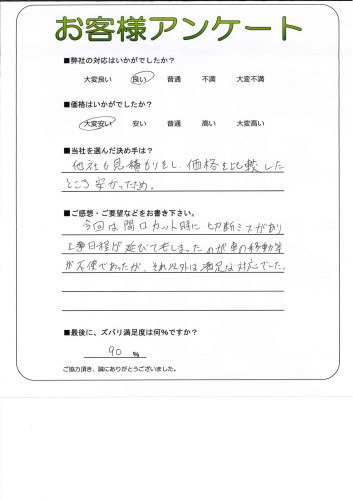 お客様アンケート
■弊社の対応はいかがでしたか？
大変良い 良い 普通 不満 大変不満
■価格はいかがでしたか？
大変安い 安い 普通 高い 大変高い
■当社を選んだ決め手は？
他社も見積りをし、価格を比較した
ところ安かったため。
■ご感想・ご要望などをお書き下さい。
今回は間口カット時に切断ミスがあり
工事日程が延びてしまったのが車の移動等
が不便であったが、それ以外は満足な対応でした。
■最後に、ズバリ満足度は何%ですか？
90 %
ご協力頂き、誠にありがとうございました。